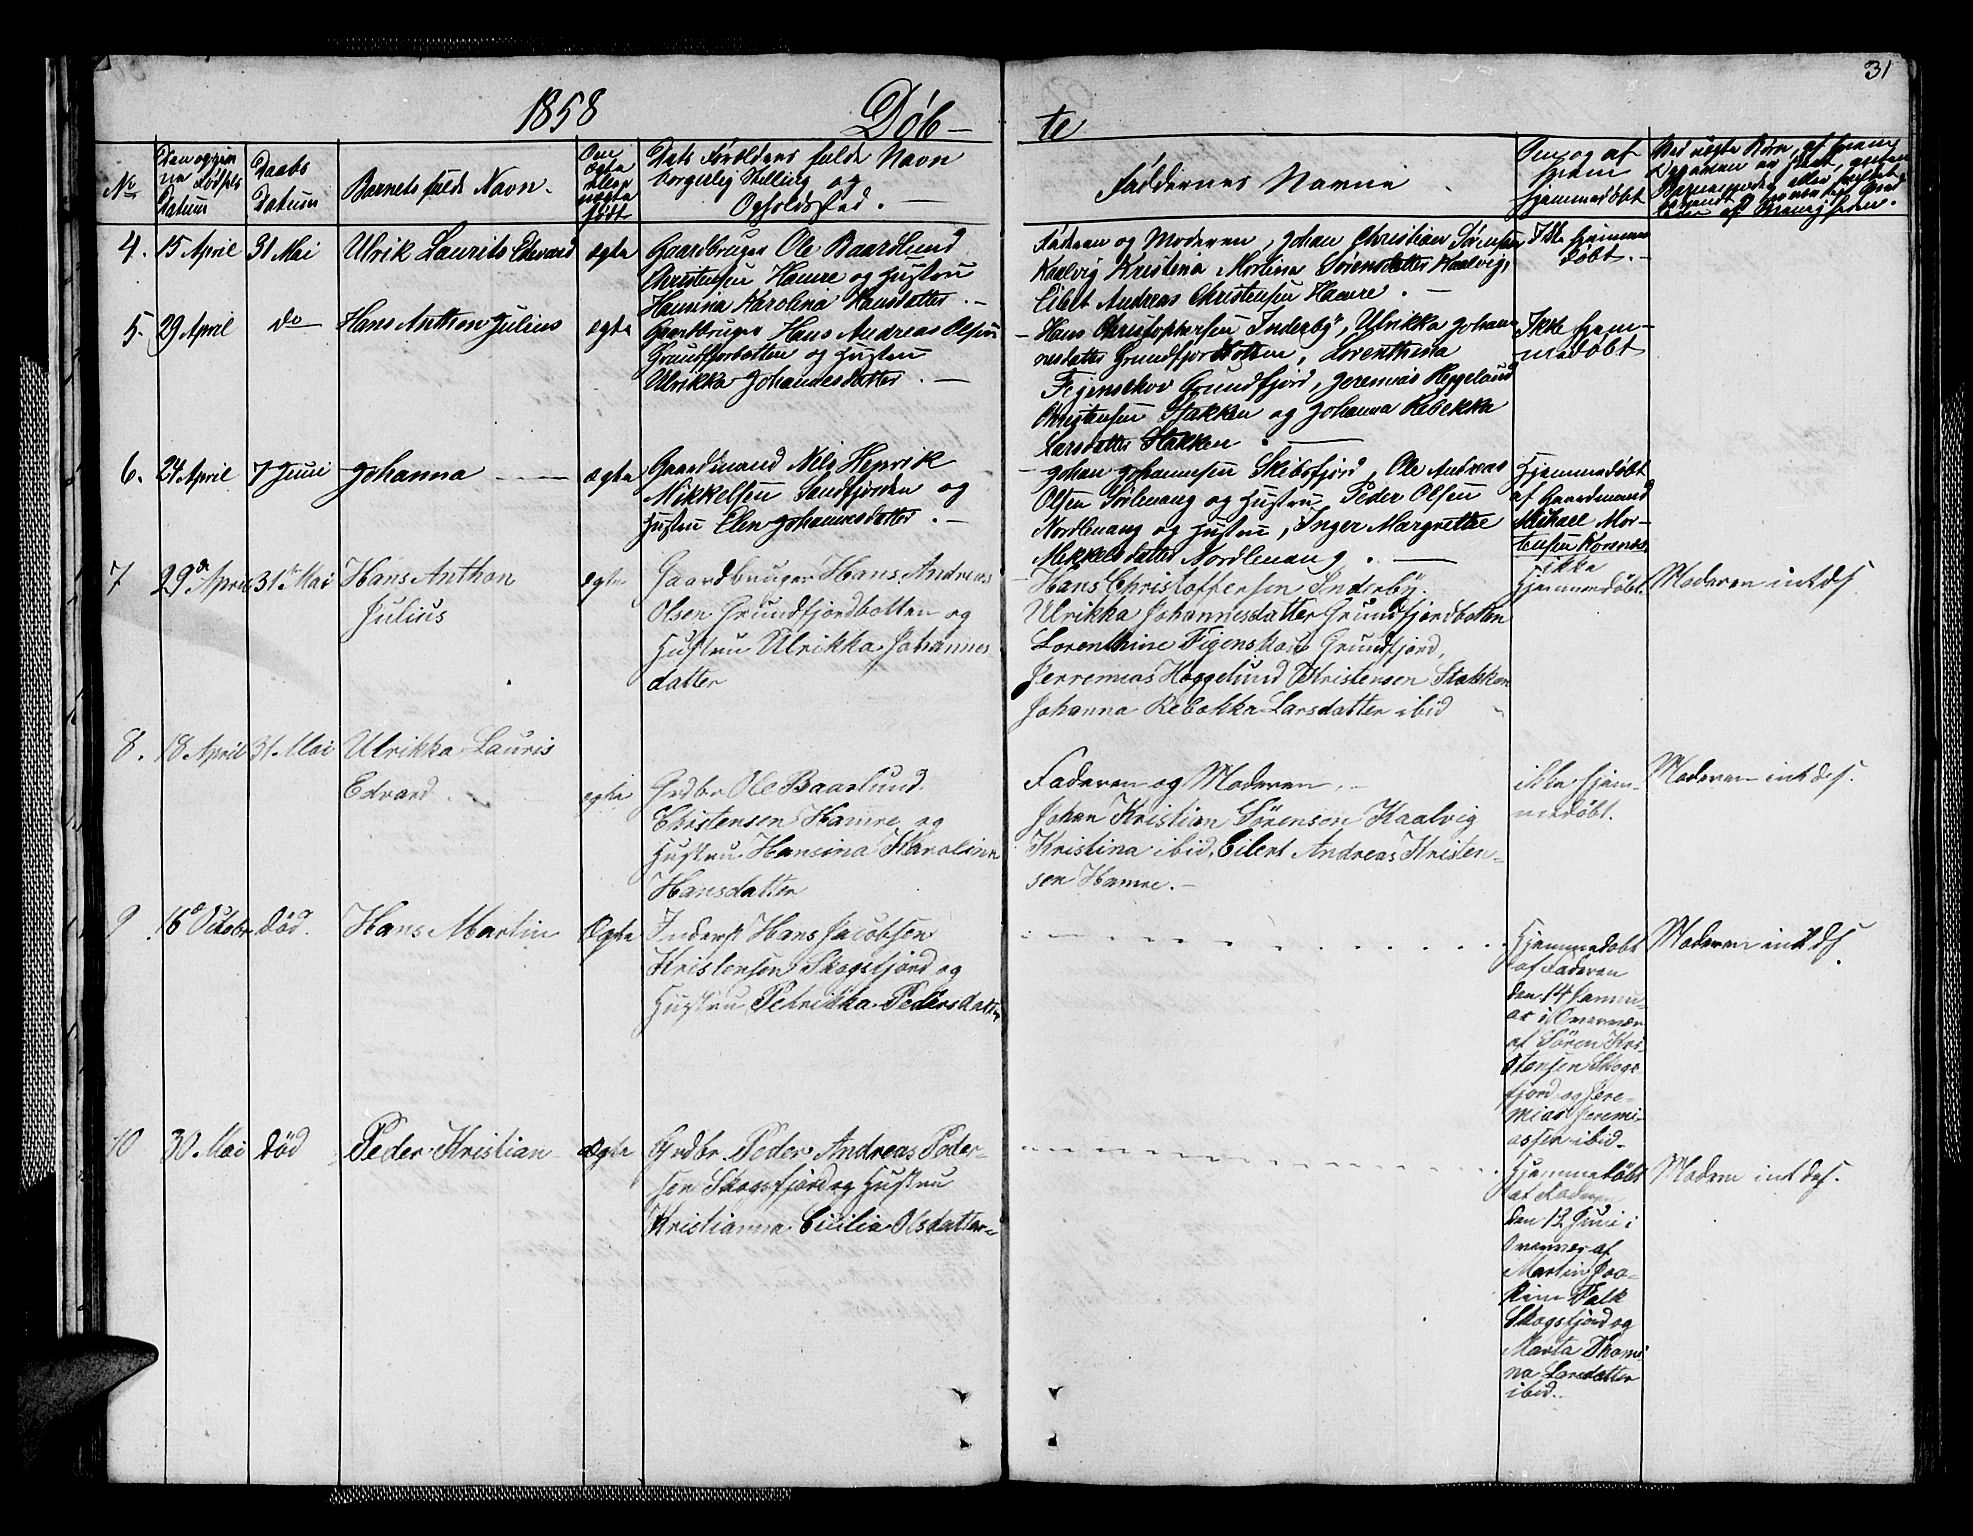 31
1858 Døb- te
No
Datum
Daabs
Datum
Barnets fulde Navn.
Om
ægte
eller
uægte
født
Dets Forældres fulde Navn
borgerlig Stilling og
Opholdssted.
Faddernes Navne
Om og af
hvem
hjemmedøbt
4. 15 April 31 Mai Ulrik Laurits Edevard ægte Gaardbruger Ole Baardlund
Christensen Hamre og Hustru
Hansina Karolina Hansdatter.
Faderen og Moderen, Johan Christian Sørensen
Kaalvig Kristina Mortina Sørensdatter Kaalvig,
Eilert Andreas Christensen Hamre.
Ikke hjemme
døbt.
5. 29 April do Hans Anthon Julius ægte Gaardbruger Hans Andreas Olsen
Grundfjorbotten og Hustru
Ulrikka Johannesdatter.
Hans Christophersen Inderby, Ulrikka Johan-
nesdatter Grundfjordbotten, Lorenthina
Figenskov Grundfjord, Jeremias Heggelund
Christensen Stakken og Johanna Rebekka
Larsdatter Stakken
Ikke hjem-
medøbt
6. 24 April 7 Juni Johanna ægte Gaardmand Nils Henrik
Mikkelsen Sandfjorden og
Hustru Elen Johannesdatter.
Johan Johannesen Skibsfjord, Ole Andreas
Olsen Sørlenang og Hustru, Peder Olsen
Nordlenang og Hustru, Inger Margrethe
Mikkelsdatter Nordlenang.
Hjemmedøbt
af Gaardmand
Michael Mor-
tensen
7 29de April 31te Mai Hans Anthon
Julius
egte Gaardbruger Hans Andreas
Olsen Grundfjordbotten og
Hustru Ulrikka Johannes
datter
Hans Christoffersen Inderby.
Ulrikka Johannesdatter Grundfjordbotten
Lorenthine Figenskou Grundfjord,
Jerremias Heggelund Christensen Stakken
Johanna Rebekka Larsdatter ibid
ikke
Hjemmedøbt.
Moderen intds.
8. 18 April 31 Mai Ulrikka Lauris
Edvard.
egte Grdbr Ole Baarlund
Christensen Hamre og
Hustru Hansina Karoline
Hansdatter
Faderen og Moderen,
Johan Kristian Sørensen Kaalvig
Kristina ibid, Eilert Andreas Kristen-
sen Hamre.
ikke hjem-
medøbt.
Moderen intds.
9. 16de Octobr død. Hans Martin Ægte Inderst Hans Jacobsen
Kristensen Skogsfjord og
Hustru Petrikka Pedersdatter
Hjemmedøbt
af Faderen
den 14 Janu-
ar i Overvær
af Sören Kri-
stensen Skogs-
fjord og Jere-
mias Jeremi-
assen ibid.
Moderen intds
10 30. Mai død Peder Kristian Ægte Grdbr Peder Andreas Peder-
sen Skogsfjord og Hustru
Kristianna Cicilia Olsdatter
Hjemmedøbt
af Faderen
den 12 Juni i
Overvær af
Martin Joa-
kim Falk
Skogsfjord og
Marta Thomi-
na Larsdatter
ibid.
Modern intds.